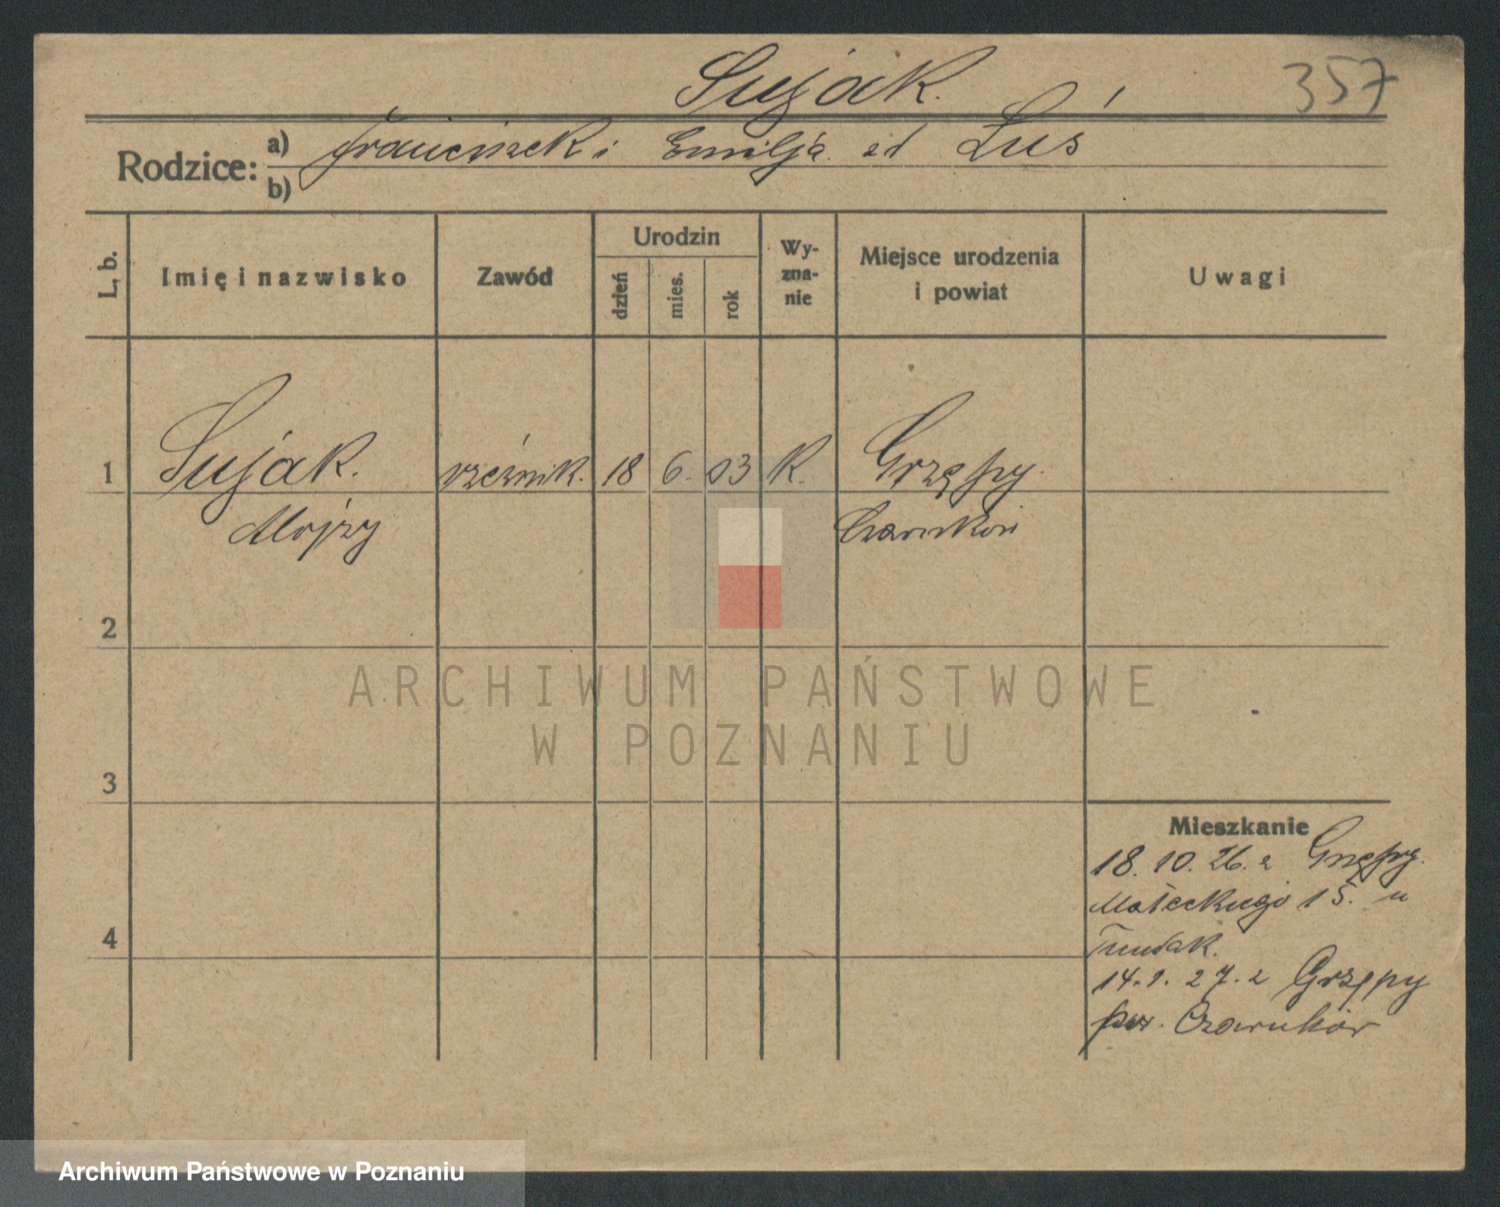 Sujak.
357
Rodzice:
a) Franciszek i Emilja zd Luś
b)
L. b.
Imię i nazwisko
Zawód
Urodzin
dzień
mies.
rok
Wy-
zna-
nie
Miejsce urodzenia
i powiat
Uwagi
1 Sujak. rzeźnik. 18 6. 03 K. Grzępy.
Alojzy Czarnków
2
3
4
Mieszkanie
18. 10. 26. z Grzępy.
Małeckiego 15. u
14. 1. 27. z Grzępy
pow. Czarnków
ARCHIWUM PAŃSTWOWE
W POZNANIU
Archiwum Państwowe w Poznaniu